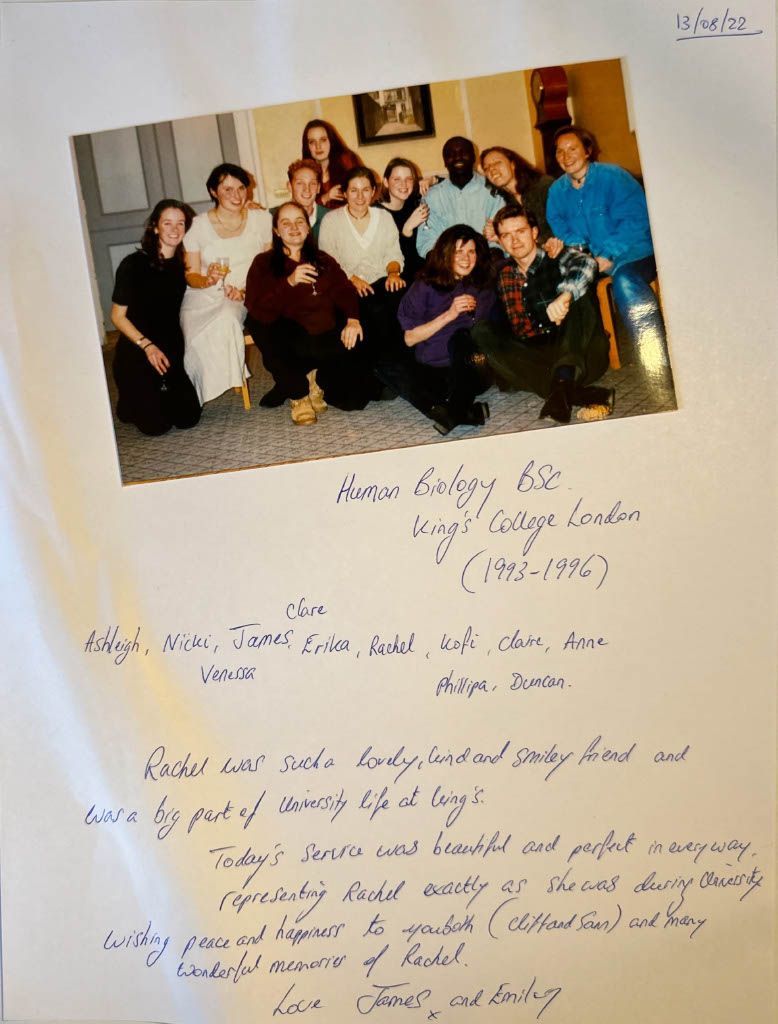 13/08/22
Human Biology BSC.
King's College London
(1993-1996)
Clare
Ashleigh, Nicki, James, Erika, Rachel, Kofi, Claire, Anne
Venessa
Phillipa, Duncan.
Rachel was such a lovely, kind and smiley friend and
was a big part of University life at King's.
Today's service was beautiful and perfect in every way,
representing Rachel exactly as she was during University
Wishing peace and happiness to you both (Cliff and Sam) and many
wonderful memories of Rachel.
Love James x and Emiley